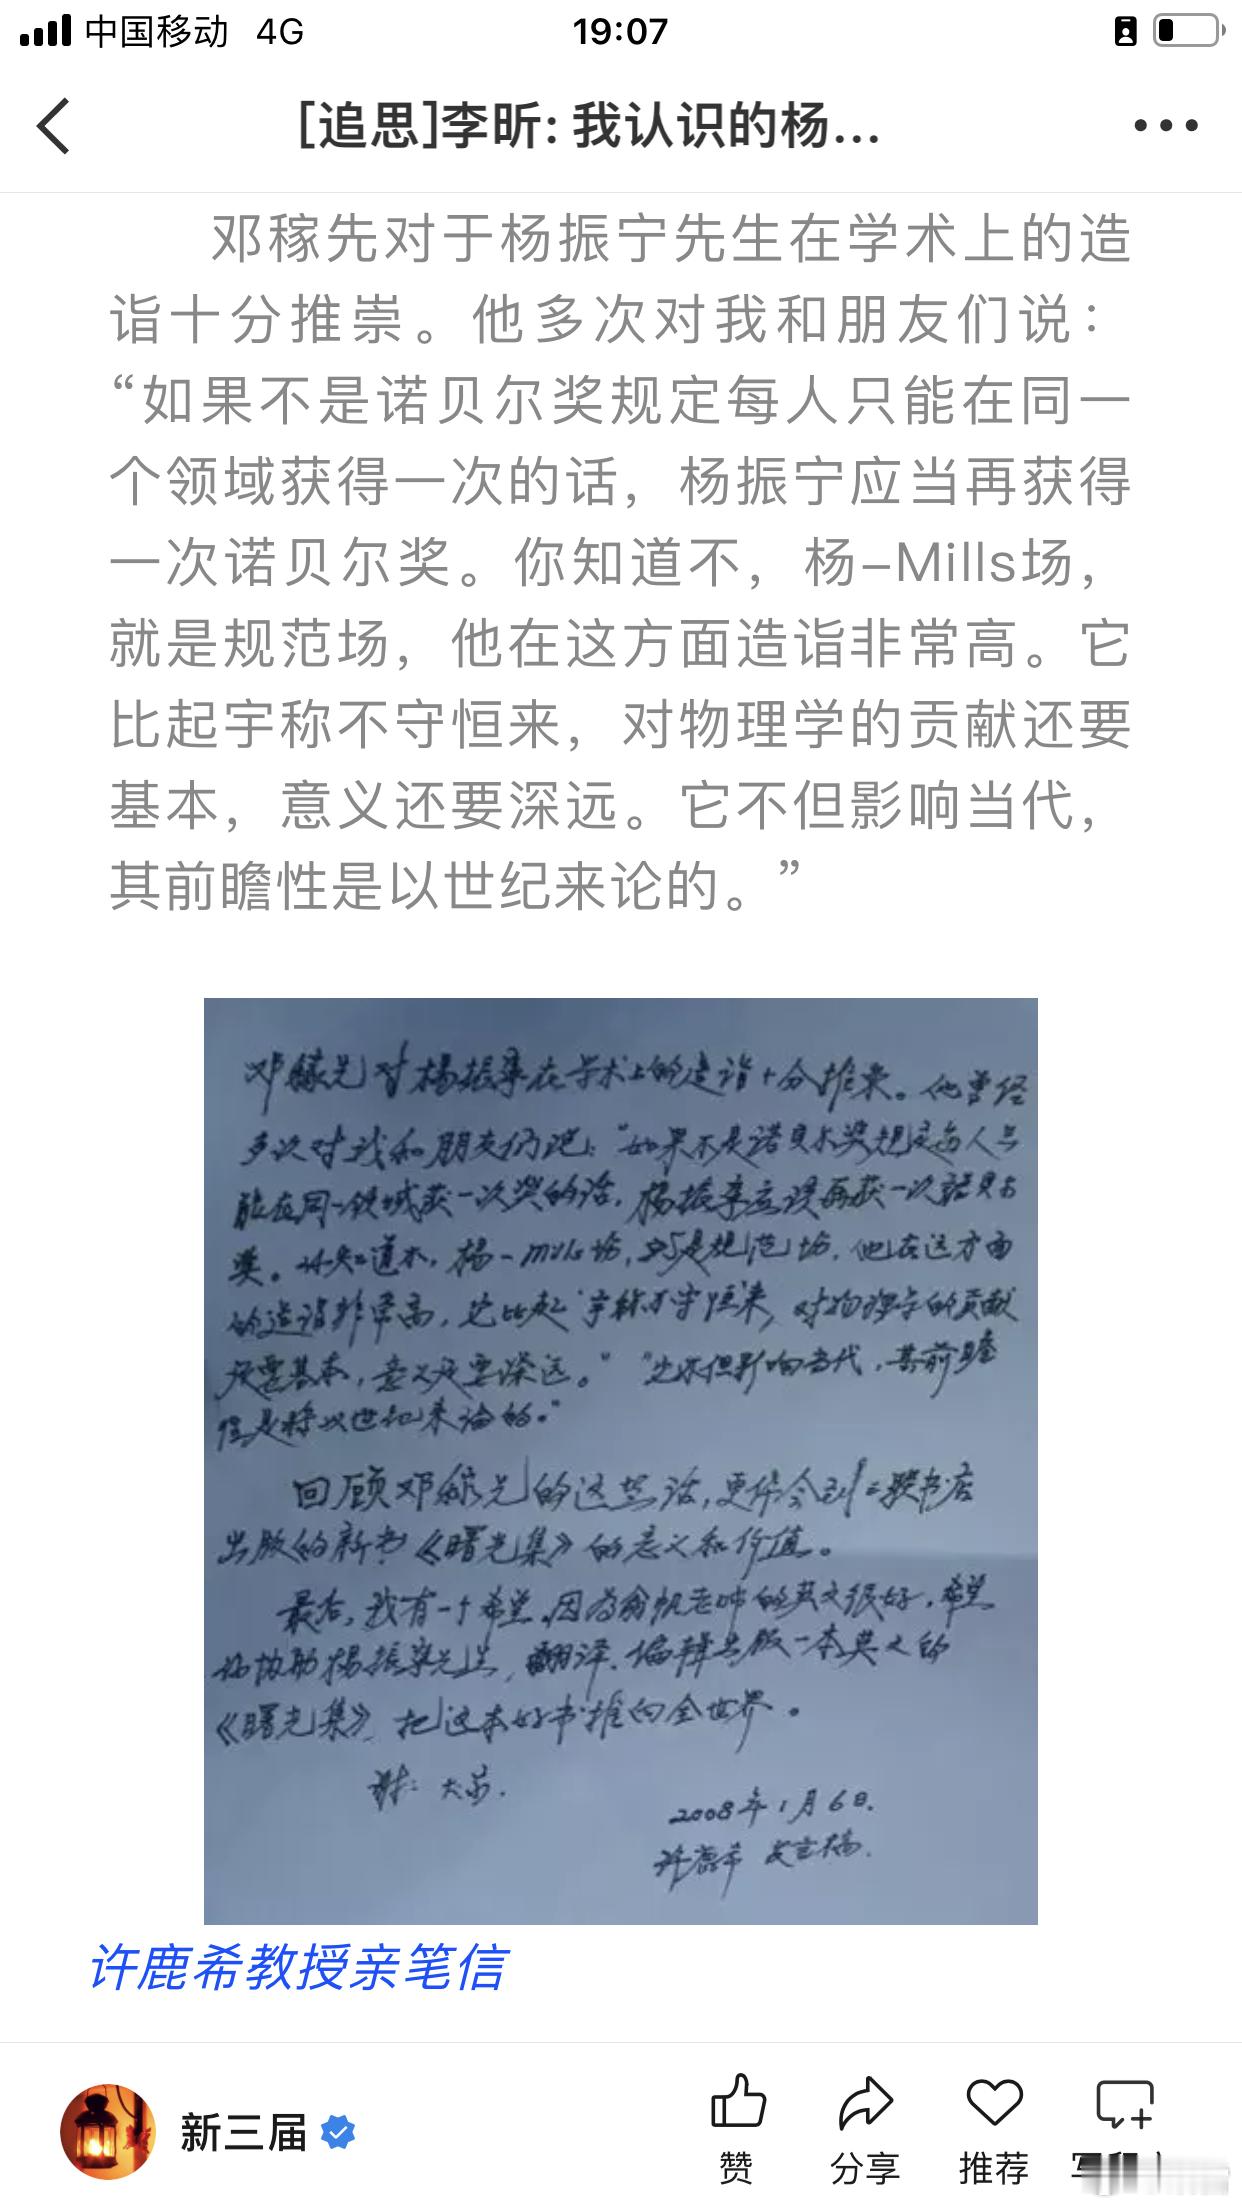 中国移动 4G 19:07
[追思]李昕: 我认识的杨...
邓稼先对于杨振宁先生在学术上的造
诣十分推崇。他多次对我和朋友们说：
“如果不是诺贝尔奖规定每人只能在同一
个领域获得一次的话，杨振宁应当再获得
一次诺贝尔奖。你知道不，杨–Mills场，
就是规范场，他在这方面造诣非常高。它
比起宇称不守恒来，对物理学的贡献还要
基本，意义还要深远。它不但影响当代，
其前瞻性是以世纪来论的。”
邓稼先对杨振宁在学术上的造诣十分推崇。他曾经
多次对我和朋友们说：“如果不是诺贝尔奖规定每人只
能在同一领域获一次奖的话，杨振宁应该再获一次诺贝尔
奖。你知道不，杨-mills场，就是规范场，他在这方面
的造诣非常高，它比起宇称不守恒来，对物理学的贡献
还要基本，意义还要深远。”“它不但影响当代，其前瞻
性是将以世纪来论的。”
回顾邓稼先的这些话，更体会到三联书店
出版的新书《曙光集》的意义和价值。
最后，我有一个希望，因为翁帆老师的英文很好，希望
你协助杨振宁先生，翻译、编辑出版一本英文的
《曙光集》，把这本好书推向全世界。
谢谢大家.
2008年1月6日.
许鹿希 发言稿.
许鹿希教授亲笔信
新三届
赞 分享 推荐